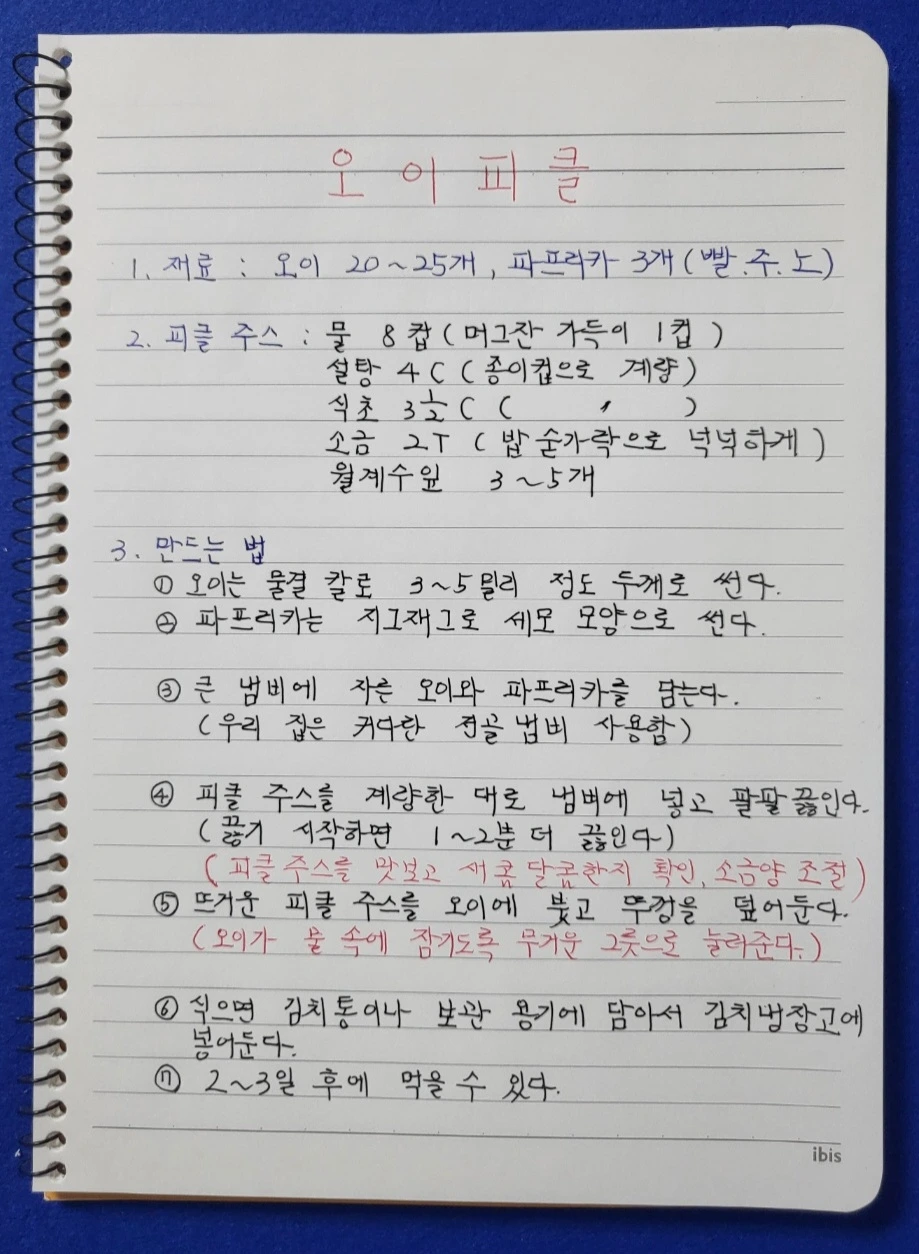 오이피클
1. 재료 : 오이 20~25개, 파프리카 3개(빨.주.노)
2. 피클 주스 : 물 8컵(머그잔 가득이 1컵)
설탕 4C (종이컵으로 계량)
식초 3½C ( 〃 )
소금 2T (밥 숟가락으로 넉넉하게)
월계수잎 3~5개
3. 만드는 법
① 오이는 물결 칼로 3~5밀리 정도 두께로 썬다.
② 파프리카는 지그재그로 세모 모양으로 썬다.
③ 큰 냄비에 자른 오이와 파프리카를 담는다.
(우리 집은 커다란 전골냄비 사용함)
④ 피클 주스를 계량한 대로 냄비에 넣고 팔팔 끓인다.
(끓기 시작하면 1~2분 더 끓인다)
(피클 주스를 맛보고 새콤달콤한지 확인, 소금양 조절)
⑤ 뜨거운 피클 주스를 오이에 붓고 뚜껑을 덮어둔다.
(오이가 물 속에 잠기도록 무거운 그릇으로 눌러준다.)
⑥ 식으면 김치통이나 보관 용기에 담아서 김치냉장고에
넣어둔다.
⑦ 2~3일 후에 먹을 수 있다.
ibis